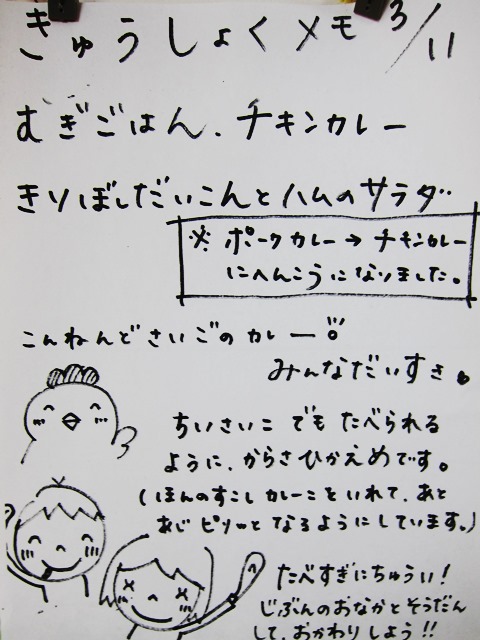 きゅうしょくメモ 3/11
むぎごはん、チキンカレー
きりぼしだいこんとハムのサラダ
※ ポークカレー→チキンカレー
にへんこうになりました。
こんねんどさいごのカレー!!。
みんなだいすき。
ちいさいこでもたべられる
ように、からさひかえめです。
(ほんのすこしカレーこをいれて、あと
あじピリッとなるようにしています。)
たべすぎにちゅうい!
じぶんのおなかとそうだん
して、おかわりしよう!!